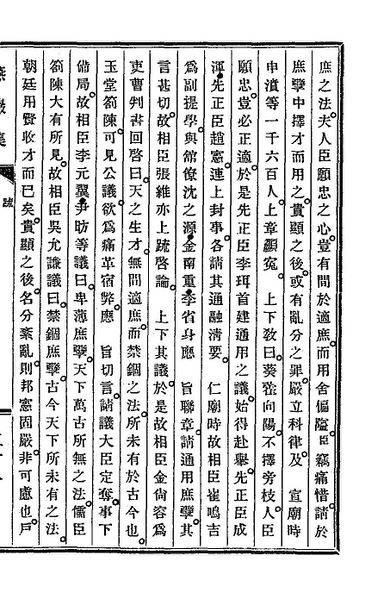 庶之法夫人臣願忠之心豈有間於適庶而用舍偏隘臣竊痛惜請於
庶孼中擇才而用之貴顯之後或有亂分之罪嚴立科律及 宣廟時
申濆等一千六百人上章籲寃 上下敎曰葵藿向陽不擇旁枝人臣
願忠豈必正適於是先正臣李珥首建通用之議始得赴擧先正臣成
渾先正臣趙憲連上封事各請其通融淸要 仁廟時故相臣崔鳴吉
爲副提學與館僚沈之源金南重李省身應 旨聯章請通用庶孼其
言甚切故相臣張維亦上疏啓論 上下其議於是故相臣金尙容爲
吏曹判書回啓曰天之生才無間適庶而禁錮之法所未有於古今也
玉堂箚陳可見公議欲爲痛革宿弊應 旨切言請議大臣定奪事下
備局故相臣李元翼尹昉等議曰卑薄庶孼天下萬古所無之法儒臣
箚陳大有所見故相臣吳允謙議曰禁錮庶孼古今天下所未有之法
朝廷用賢收才而已矣貴顯之後名分紊亂則邦憲固嚴非可慮也戶
疏